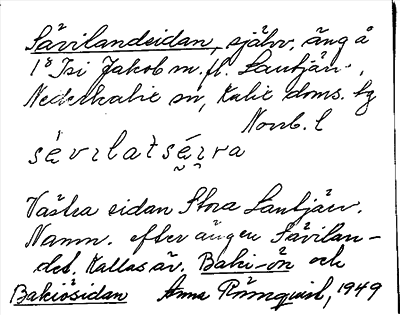 Sävilandsidan, självr. äng å
1° Isi Jakob m. fl. Lautjärv.,
Nederkalix sn, Kalix doms. tg
Norrb. l
Västra sidan Stora Lautjärv.
Namn. efter ängen Sävilan-
det. Kallas äv. Baki-ön och
Bakiösidan Anna Rönnquist, 1949